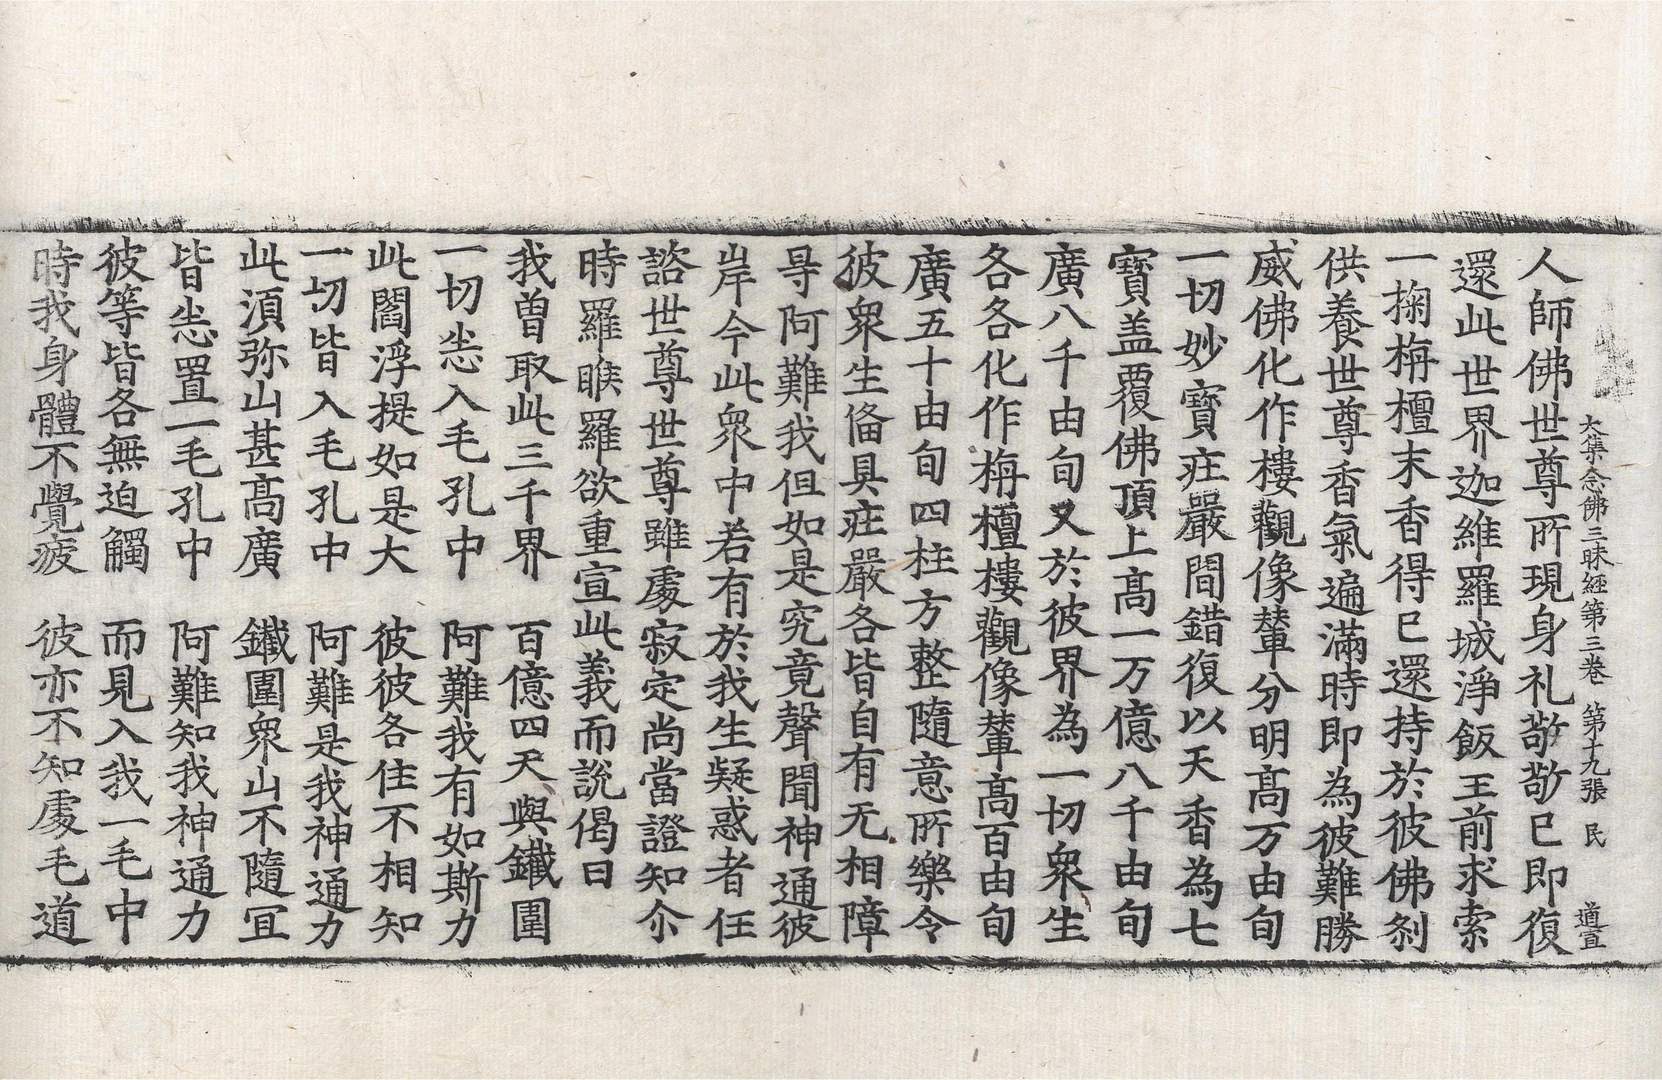 大集念佛三昧經第三卷 第十九張 民 道宣
人師佛世尊所現身礼敬敬已即復
還此世界迦維羅城淨飯王前求索
一掬栴檀末香得已還持於彼佛刹
供養世尊香氣遍滿時即為彼難勝
威佛化作樓觀像輦分明髙万由旬
一切妙寶疘嚴間錯復以天香為七
寶盖覆佛頂上髙一万億八千由旬
廣八千由旬又於彼界為一切衆生
各各化作栴檀樓觀像輦髙百由旬
廣五十由旬四柱方整隨意所樂令
彼衆生俻具疘嚴各皆自有无相障
㝵阿難我但如是究竟聲聞神通彼
岸今此衆中若有於我生疑惑者任
諮世尊世尊雖處寂定尚當證知尒
時羅睺羅欲重宣此義而說偈曰
我曽取此三千界 百億四天與鐵圍
一切悉入毛孔中 阿難我有如斯力
此閻浮提如是大 彼彼各住不相知
一切皆入毛孔中 阿難是我神通力
此湏弥山甚髙廣 鐵圍衆山不隨冝
皆悉置一毛孔中 阿難知我神通力
彼等皆各無迫觸 而見入我一毛中
時我身體不覺疲 彼亦不知處毛道